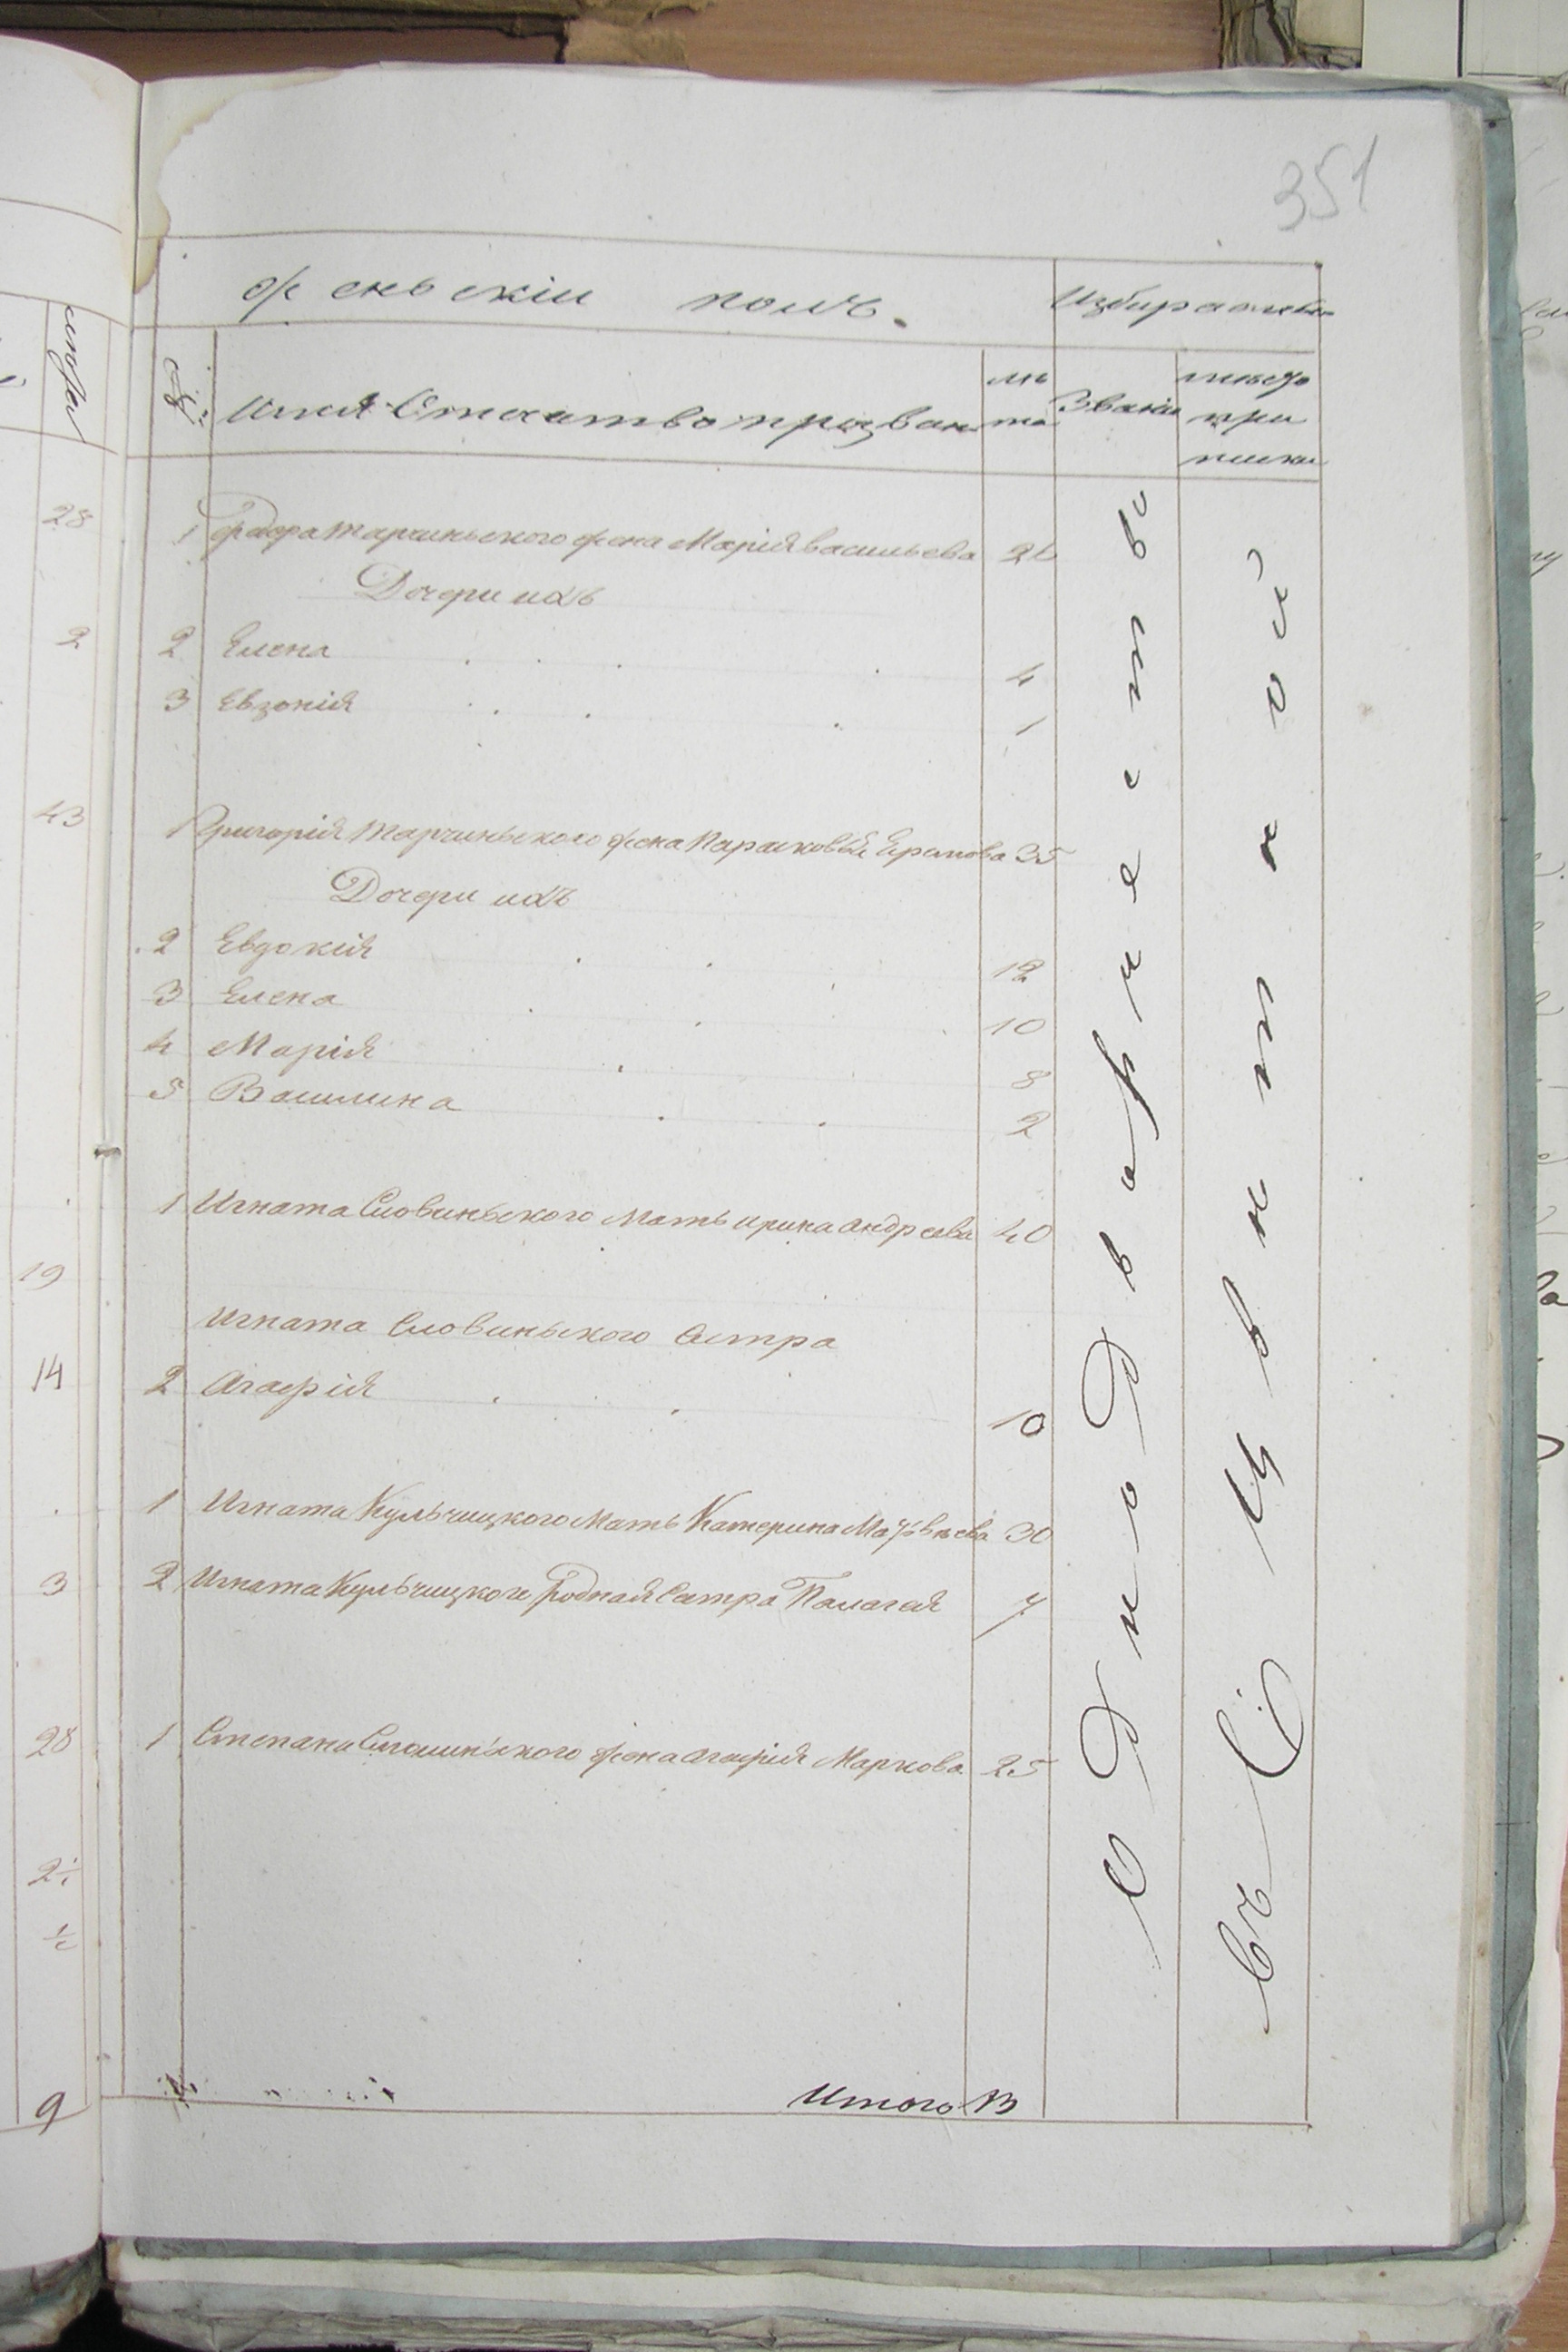 351
женьскій полъ.
Избираютъ
№
Имя Отечство и прозван
лѣ
та
Звания
мѣсто
при
писки
1 Федора Марчиньского жена Марія Васильева 26
Дочери ихъ
2 Елена 4
3 Евзонія 1
1 Григорія Марчиньского жена Парасковья 35
Дочери ихъ
2 Евдокія 12
3 Елена 10
4 Марія 8
5 Василина 2
1 Игната Словиньского Мать Ирина Андреева 40
Игната Словиньского Сестра
2 Агафія 10
1 Игната Кульчицкого Мать Катерина Матвѣева 30
2 Игната Кульчицкого Родная Сестра Палагея 7
1 Степана жена Агафія Маркова 25
Итого 13
Однодворчество
въ Цвѣтной
28
2
43
19
14
3
28
2½
½
9